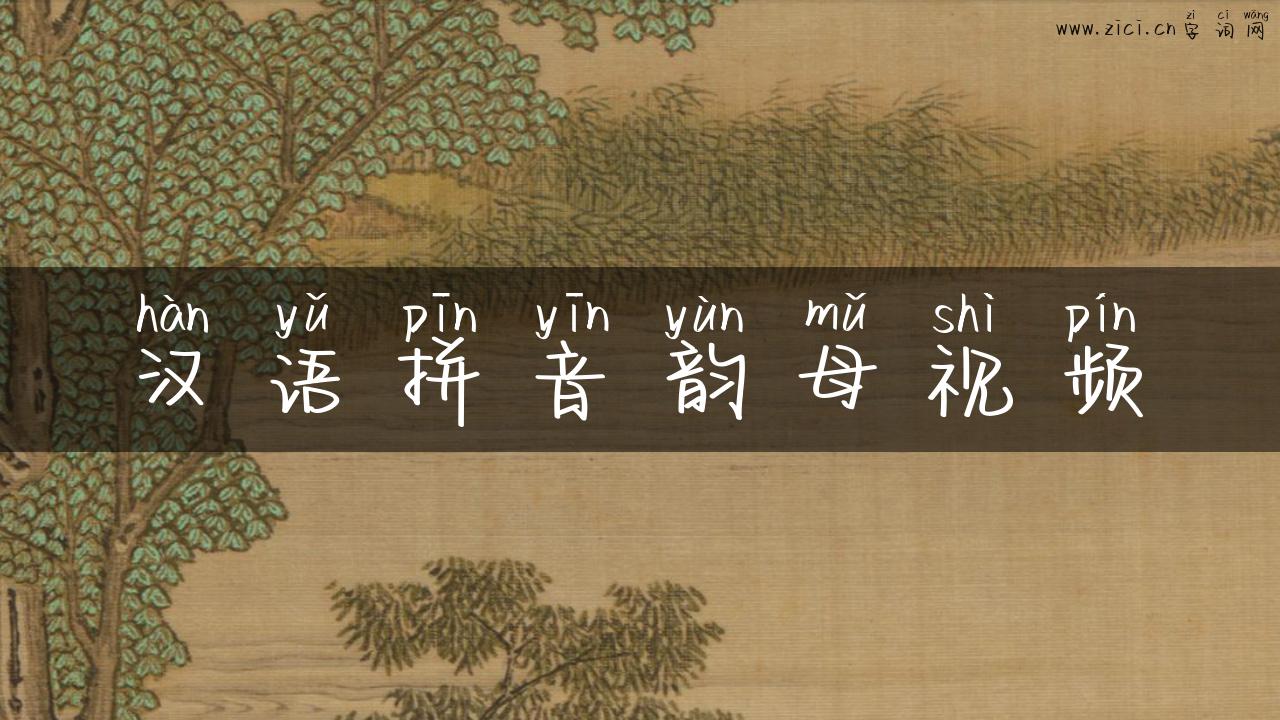 zì cí wǎng
www.zici.cn 字词网
hàn yǔ pīn yīn yùn mǔ shì pín
汉语拼音韵母视频